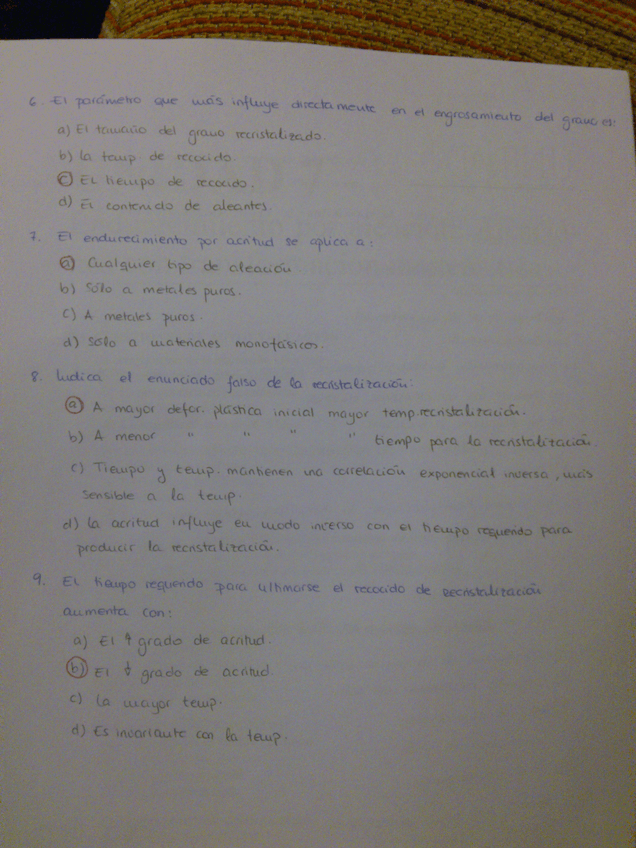 6. El parámetro que más influye directamente en el engrosamiento del grano es:
a) El tamaño del grano recristalizado.
b) La temp de recocido.
c) EL tiempo de recocido.
d) El contenido de aleantes.
7. El endurecimiento por acritud se aplica a:
a) Cualquier tipo de aleación
b) Sólo a metales puros.
c) A metales puros.
d) Sólo a materiales monofásicos.
8. Indica el enunciado falso de la recristalización:
a) A mayor defor. plástica inicial mayor temp.recristalización.
b) A menor " " " " tiempo para la recristalización.
c) Tiempo y temp. mantienen una correlación exponencial inversa, más
sensible a la temp.
d) La acritud influye en modo inverso con el tiempo requerido para
producir la recristalización.
9. El tiempo requerido para ultimarse el recocido de Recristalización
aumenta con:
a) El ↑ grado de acritud.
b) El ↓ grado de acritud.
c) La mayor temp.
d) Es invariante con la temp.